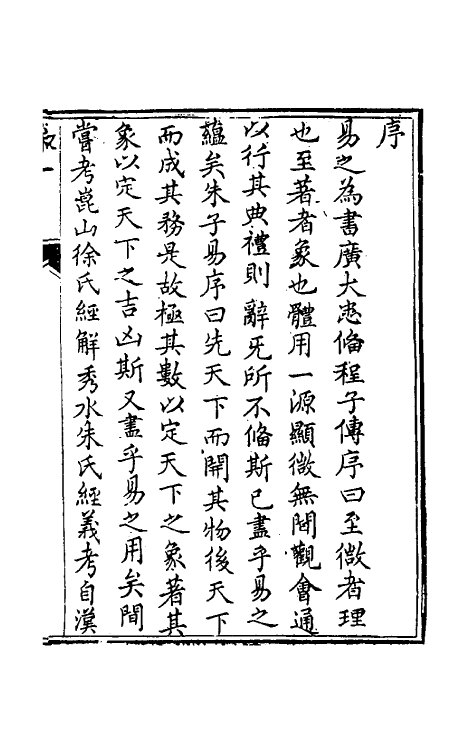 序
易之為書廣大悉俻程子傳序曰至微者理
也至著者象也體用一源顯微無間觀會通
以行其典禮則辭旡所不俻斯已盡乎易之
蘊矣朱子易序曰先天下而開其物後天下
而成其務是故極其數以定天下之象著其
象以定天下之吉凶斯又盡乎易之用矣間
嘗考崑山徐氏經解秀水朱氏經義考自漢